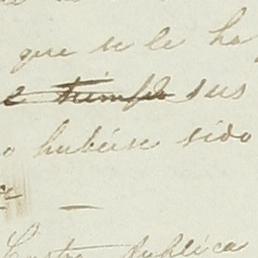 que se le ha
e triunfo sus
o hubiese sido
Pública